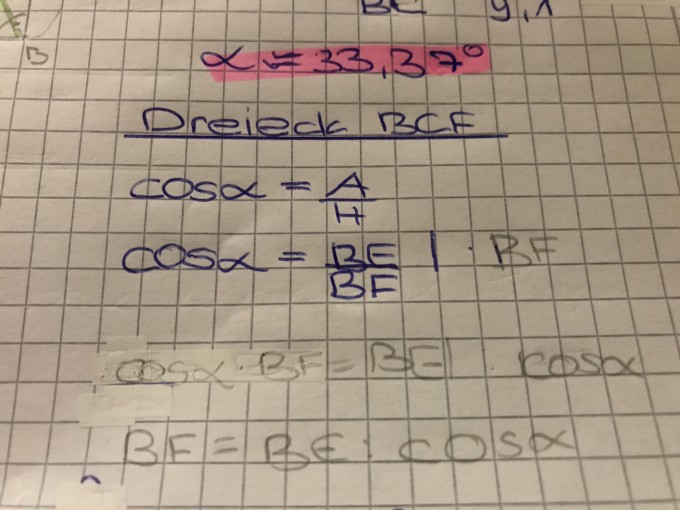 BE 9,1
B
α = 33,37°
Dreieck BCF
cosα = A/H
cosα = BE/BF | · BF
cosα · BF = BE | cosα
BF = BE : cosα